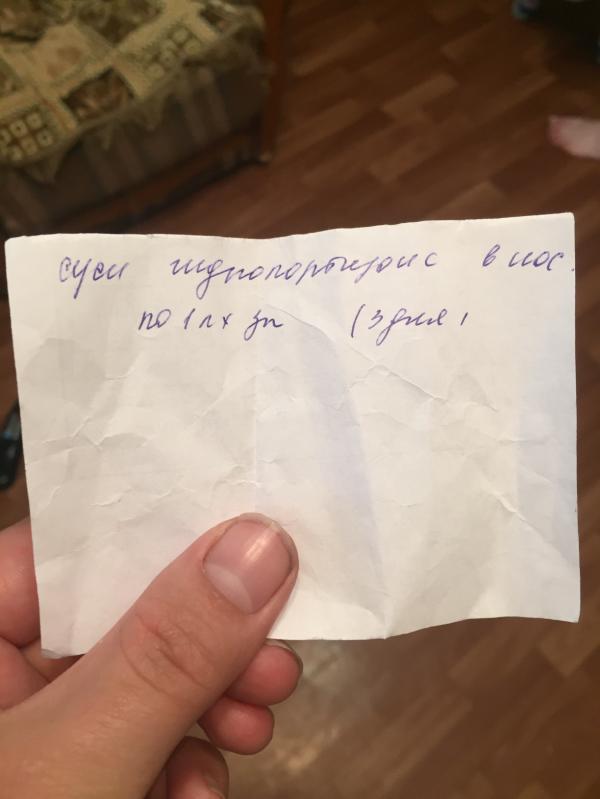 сусп гидрокортизон в нос.
по 1 п х 3р (3 дня)